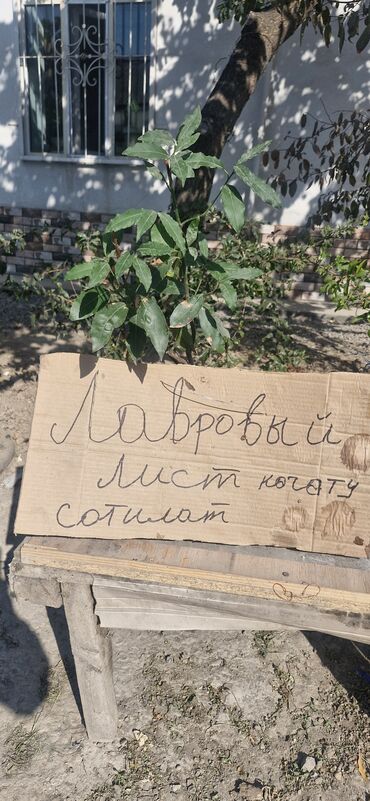 Лавровый
лист кочату
сотилат